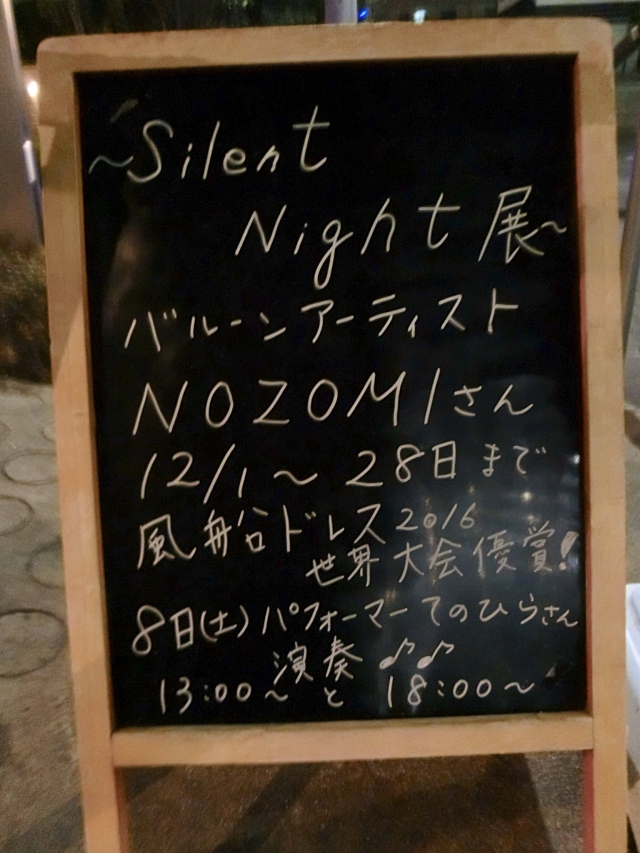 ~Silent
Night展~
バルーンアーティスト
NOZOMIさん
12/1~28日まで
風船ドレス2016
世界大会優賞!
8日(土)パフォーマーてのひらさん
演奏♪♪
13:00~と18:00~